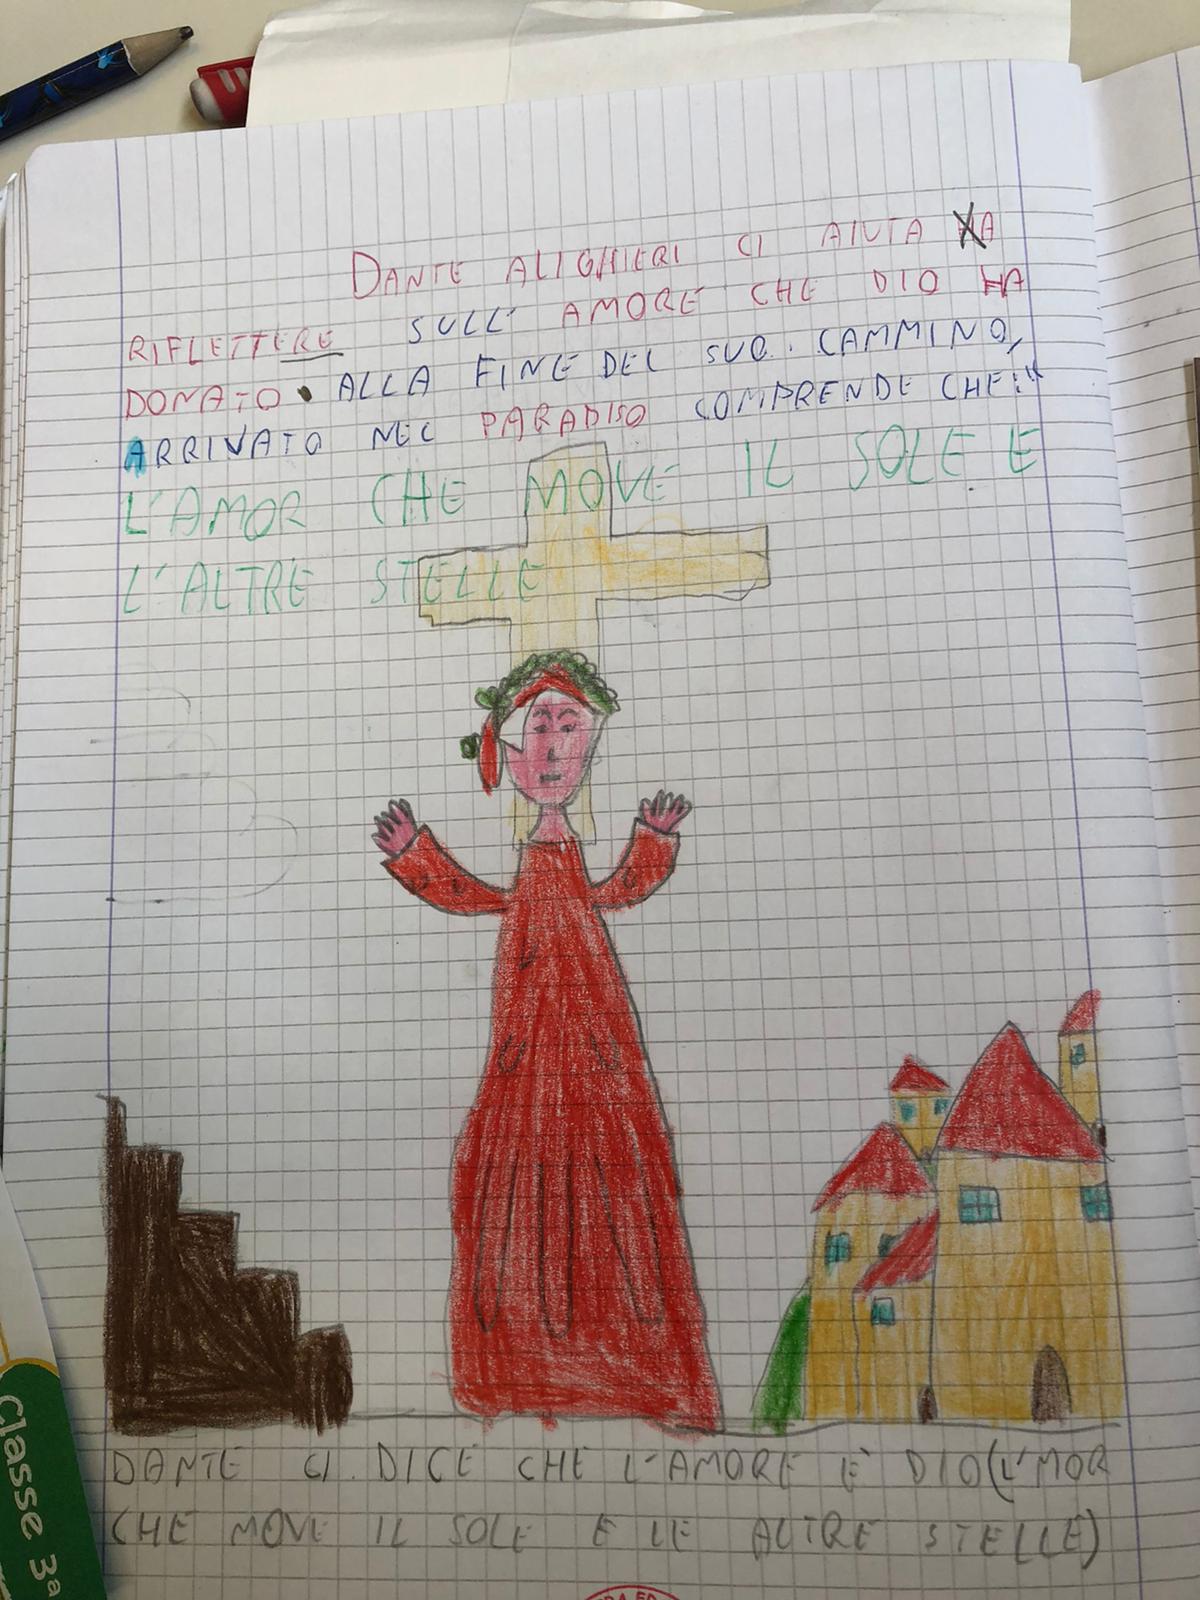 DANTE ALIGHIERI CI AIUTA A
RIFLETTERE SULL' AMORE CHE DIO HA
DONATO. ALLA FINE DEL SUO. CAMMINO,
ARRIVATO NEL PARADISO COMPRENDE CHE:"
L'AMOR CHE MOVE IL SOLE E
L'ALTRE STELLE
DANTE CI DICE CHE L'AMORE È DIO (L'MOR
CHE MOVE IL SOLE E LE ALTRE STELLE)
Classe 3ª